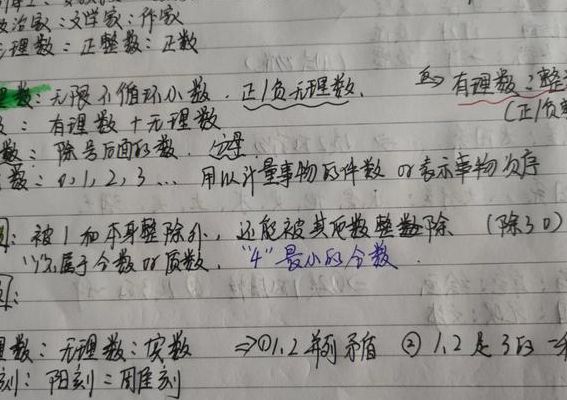 政治家：文学家：作家
理数：正整数：正数
数：无限不循环小数．正/负无理数． ⇒ 有理数：整
：有理数＋无理数 (正/负
数：除号后面的数．分母
数：0,1,2,3…　用以计量事物的件数 or 表示事物次序
：被1和本身整除外，还能被其他数整数除 （除了0）
属于合数or质数．“4”最小的合数．
：
理数：无理数：实数 ⇒①1,2并列矛盾 ②1,2是3的一
刻：阳刻＝周隹刻